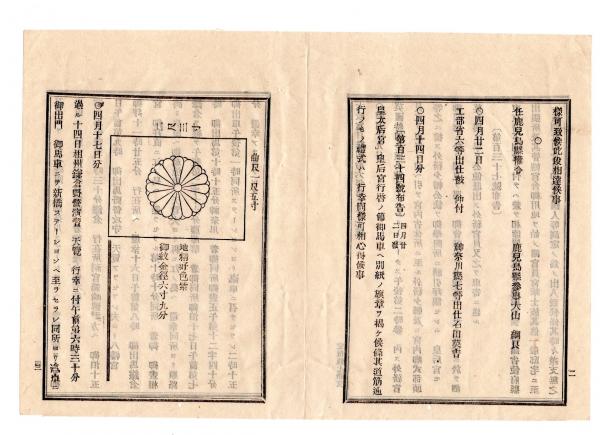 様可致候此段相達候事
○
任鹿兒島縣權令 鹿兒島縣參事大山 綱良
○四月廿二日
工部省六等出仕被 仰付 神奈川縣七等出仕石田英吉
○四月十四日分
〔第百三十四號布告〕四月廿二日發
皇太后宮皇后宮行啓ノ節御馬車ヘ別紙ノ旗章ヲ揭ケ候條其道筋通
行ノモノ禮式ハ行幸同樣可相心得候事
二
曲尺一尺五寸
一尺三寸
地精好色紫
御紋金徑六寸九分
○四月十七日分
過ル十四日相州鎌倉 天覽 行幸ニ付午前第六時三十分
御出門 御馬車ニテ新橋ステーションヘ至ラセラレ同所ヨリ汽車
三